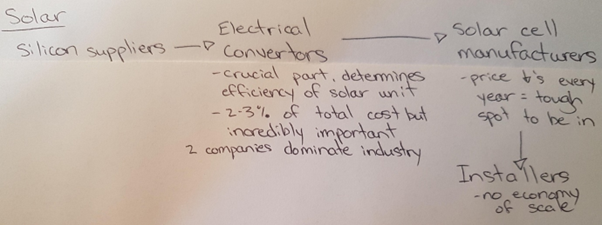 Solar
Silicon suppliers
Electrical
convertors
-crucial part, determines
efficiency of solar unit
-2-3% of total cost but
incredibly important
2 companies dominate industry
Solar cell
manufacturers
-price ↓'s every
year = tough
spot to be in
Installers
-no economy
of scale